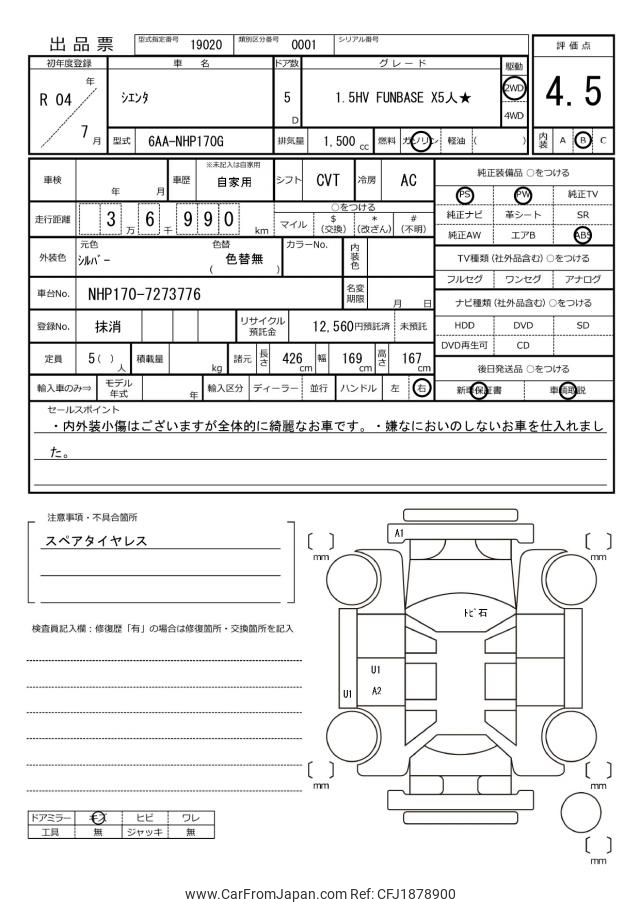 出品票 型式指定番号 19020 類別区分番号 0001 シリアル番号
評価点
4.5
内装 A B C
初年度登録 車名 ドア数 グレード 駆動
R 04 年 7 月
シエンタ
5 D
1.5HV FUNBASE X5人★
2WD
4WD
型式 6AA-NHP170G 排気量 1,500 cc 燃料 ガソリン 軽油 ( )
車検 年 月 車歴 ※未記入は自家用 自家用 シフト CVT 冷房 AC
走行距離 3 万 6 千 9 9 0 km
○をつける
マイル $ (交換) * (改ざん) # (不明)
外装色 元色 シルバー 色替 ( 色替無 ) カラーNo. 内装色
車台No. NHP170-7273776 名変期限 月 日
登録No. 抹消 リサイクル預託金 12,560円預託済 未預託
定員 5 ( ) 人 積載量 kg 諸元 長さ 426 cm 幅 169 cm 高さ 167 cm
輸入車のみ⇒ モデル年式 年 輸入区分 ディーラー 並行 ハンドル 左 右
純正装備品 ○をつける
PS PW 純正TV
純正ナビ 革シート SR
純正AW エアB ABS
TV種類 (社外品含む) ○をつける
フルセグ ワンセグ アナログ
ナビ種類 (社外品含む) ○をつける
HDD DVD SD
DVD再生可 CD
後日発送品 ○をつける
新車保証書 車輌取説
セールスポイント
・内外装小傷はございますが全体的に綺麗なお車です。・嫌なにおいのしないお車を仕入れまし
た。
注意事項・不具合箇所
スペアタイヤレス
検査員記入欄：修復歴「有」の場合は修復箇所・交換箇所を記入
A1
トビ石
U1
A2
U1
mm
mm
mm
mm
mm
ドアミラー キズ ヒビ ワレ
工具 無 ジャッキ 無
www.CarFromJapan.com Ref: CFJ1878900